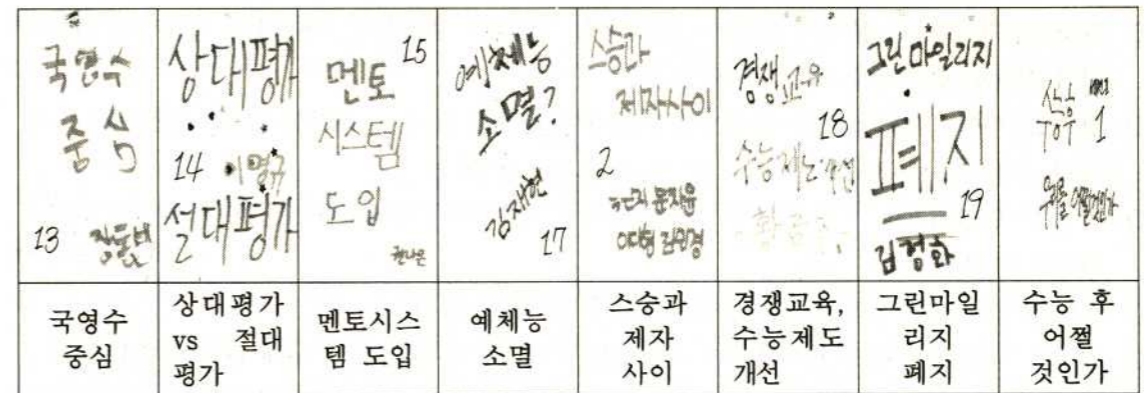 국영수
중심
13
상대평가
14 이영규
절대평가
15
멘토
시스템
도입
예체능
소멸?
김재현
17
스승과
제자사이
2
문지윤
경쟁교육
18
수능제도개선
그린마일리지
폐지
19
김정화
수능후 1
우리는 어쩔것인가
국영수
중심
상대평가
vs 절대
평가
멘토시스
템 도입
예체능
소멸
스승과
제자
사이
경쟁교육,
수능제도
개선
그린마일
리지
폐지
수능 후
어쩔
것인가